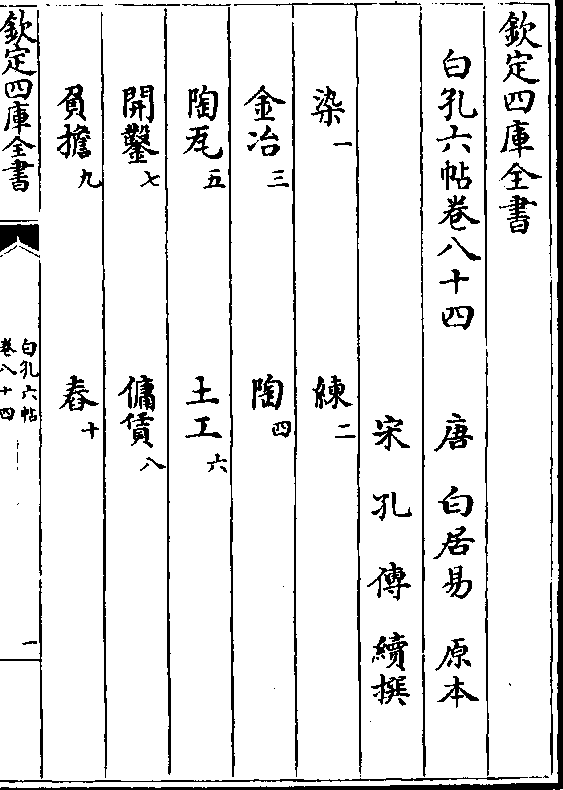 欽定四庫全書
白孔六帖卷八十四 唐 白居易 原本
宋 孔傳 續撰
染一 練二
金冶三 陶四
陶瓦五 土工六
開鑿七 傭賃八
負擔九 舂十
欽定四庫全書
白孔六帖
卷八十四
一